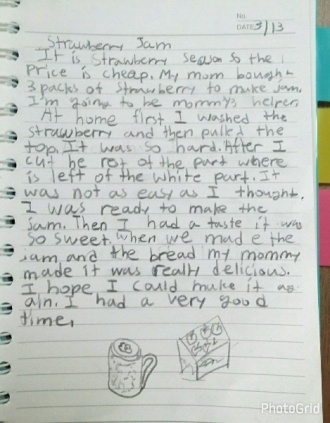 No.
DATE 3/13
Strawberry Jam
It is Strawberry season so the
Price is cheap. My mom bought
3 packs of Strawberry to make jam.
I'm going to be mommys helper.
At home first I washed the
strawberry and then pulled the
top. It was so hard. After I
cut he rest of the part where
is left of the white part. It
was not as easy as I thought.
I was ready to make the
jam. Then I had a taste it was
so sweet. When we made the
jam and the bread my mommy
made it was really delicious.
I hope I could make it ag-
ain. I had a very good
time.
PhotoGrid